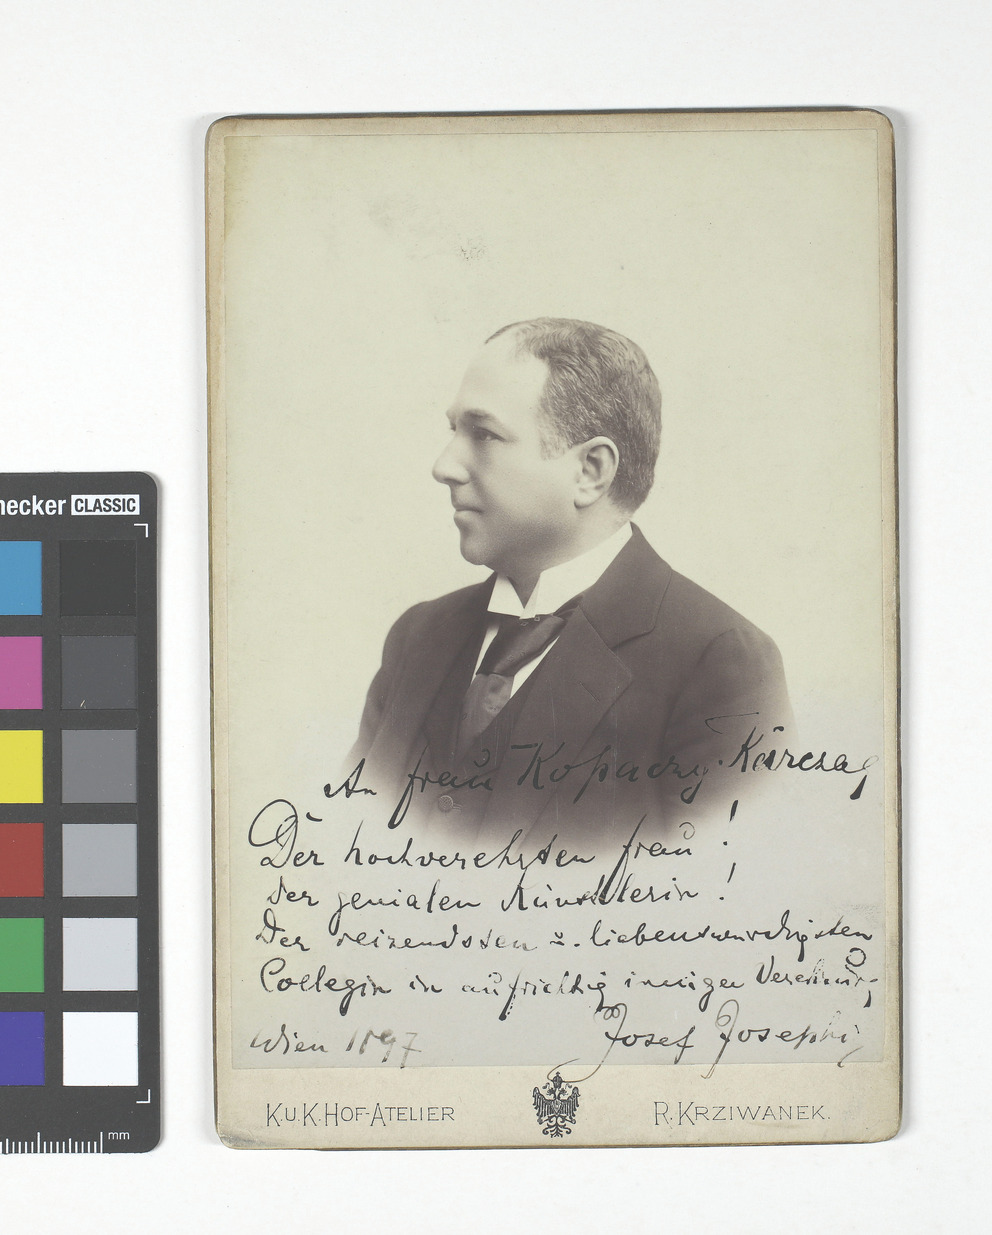 hecker CLASSIC
An Frau Kopaczy-Karczag
Der hochverehrten Frau!
Der genialen Künstlerin!
Der reizendsten u. liebenswürdigsten
Collegin in aufrichtig inniger Verehrung
Josef Josephi
Wien 1897
K.u.K.Hof-Atelier
R. Krziwanek.
mm